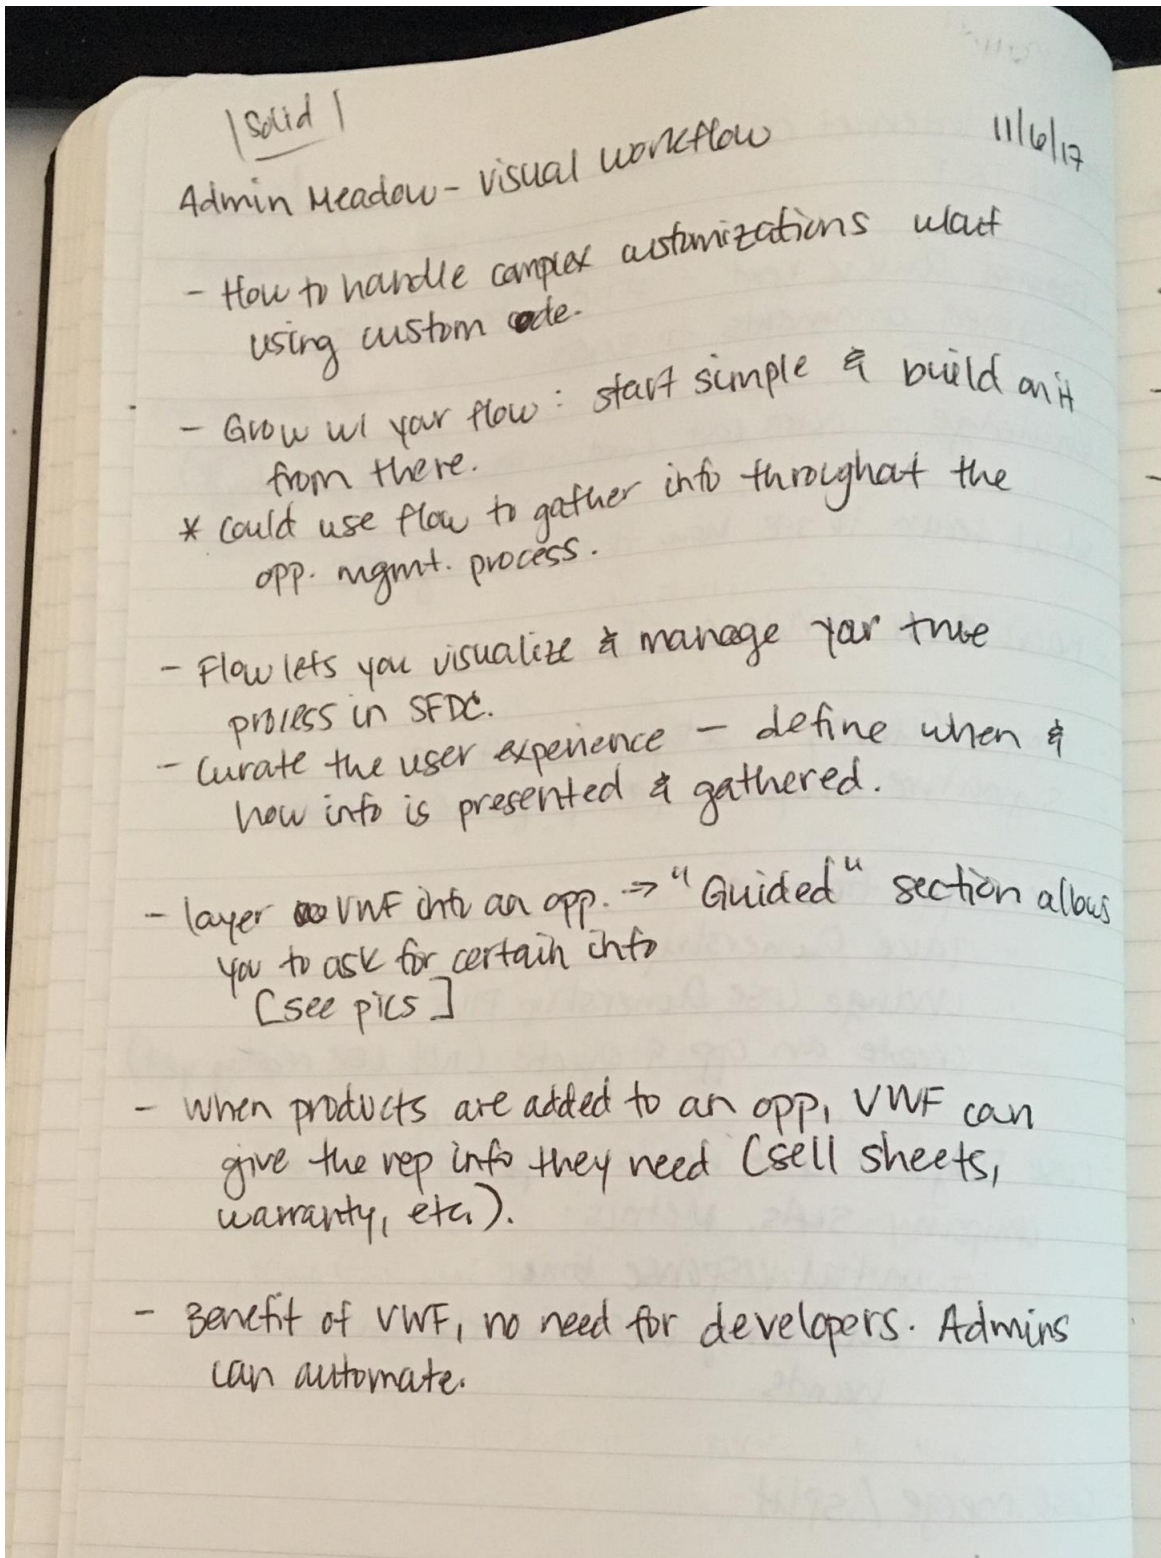 |Solid|
11/6/17
Admin Meadow - Visual Workflow
- How to handle complex customizations w/out
using custom code.
- Grow w/ your flow: start simple & build on it
from there.
* Could use flow to gather info throughout the
opp. mgmt. process.
- Flow lets you visualize & manage your true
process in SFDC.
- Curate the user experience - define when &
how info is presented & gathered.
- layer VWF into an opp. => "Guided" section allows
you to ask for certain info
[see pics]
- When products are added to an opp, VWF can
give the rep info they need (sell sheets,
warranty, etc.).
- Benefit of VWF, no need for developers. Admins
can automate.